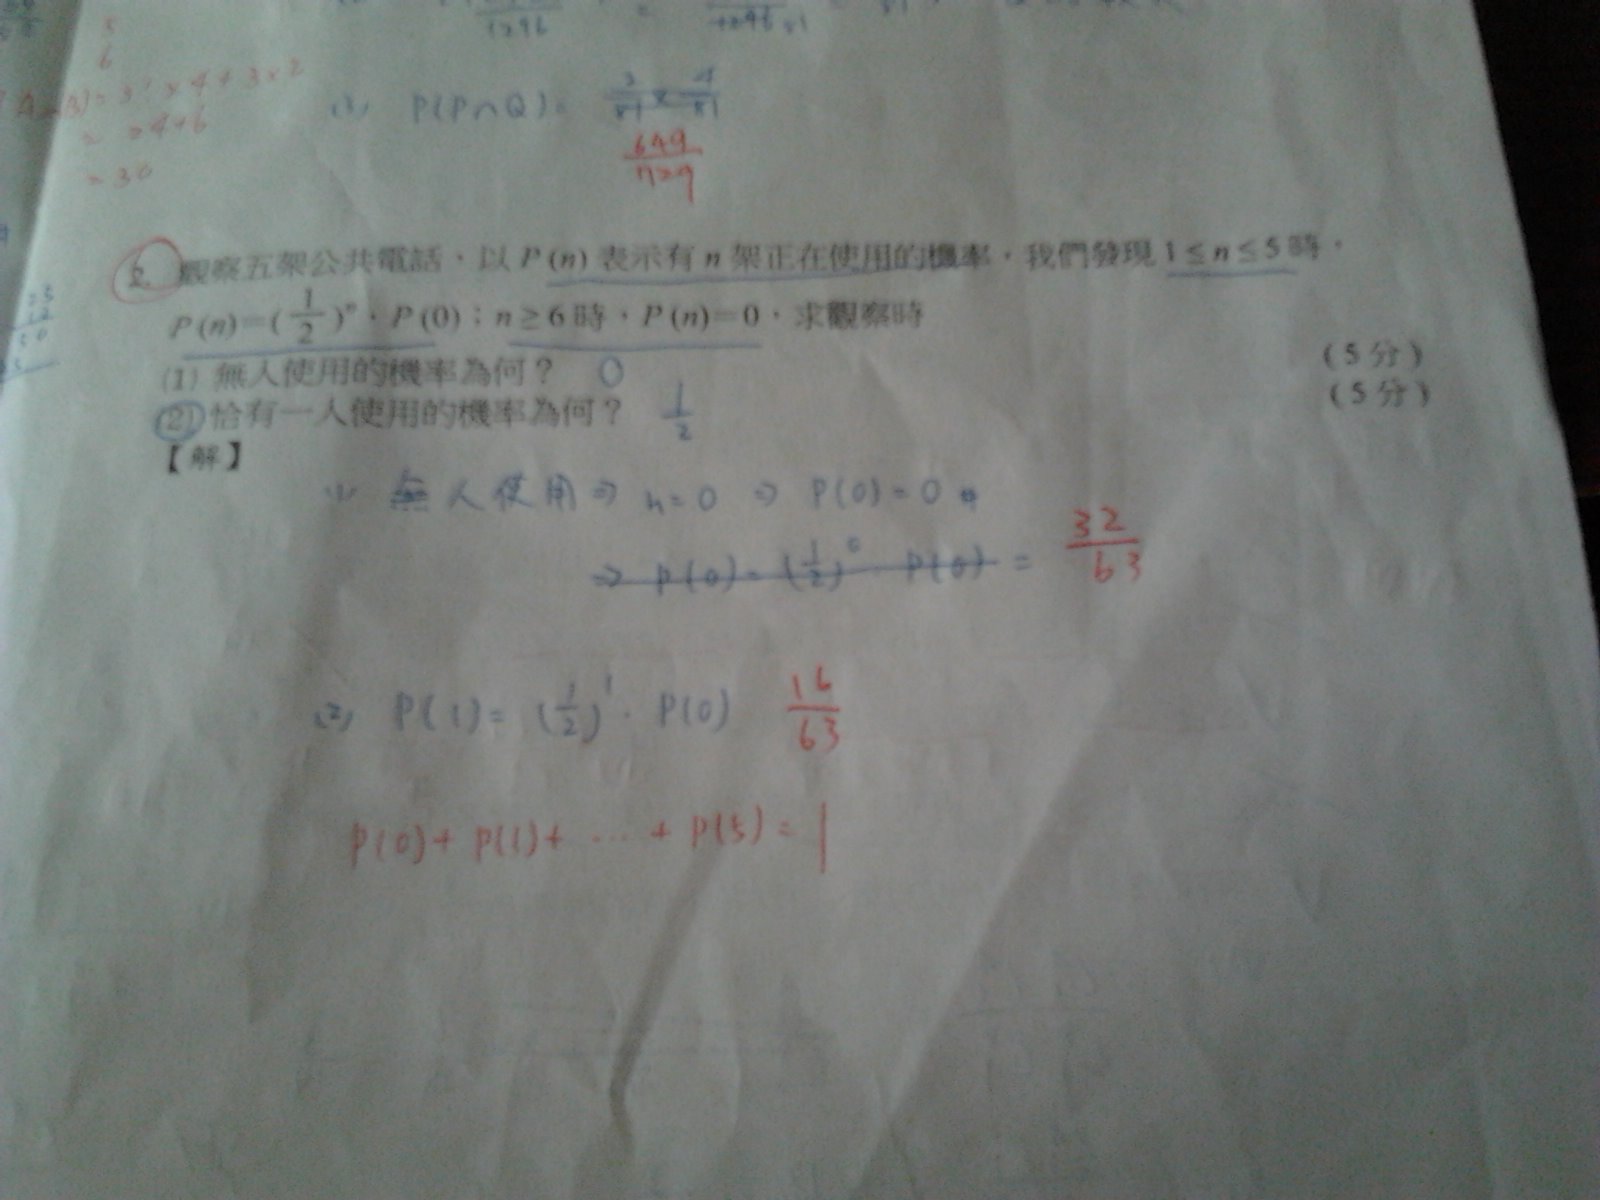 5
6
= 3! × 4 + 3 × 2
= 24+6
= 30
1296
P(P∩Q) =
649
729
2. 觀察五架公共電話，以 P(n) 表示有 n 架正在使用的機率，我們發現 1 ≤ n ≤ 5 時，
P(n)=(1/2)ⁿ．P(0)；n ≥ 6 時，P(n)=0，求觀察時
(1) 無人使用的機率為何？ 0 (5分)
(2) 恰有一人使用的機率為何？ 1/2 (5分)
【解】
(1) 無人使用 ⇒ n=0 ⇒ P(0)=0
⇒ P(0) = (1/2)⁰ · P(0) = 32/63
(2) P(1) = (1/2)¹ · P(0) 16/63
P(0)+P(1)+ ... + P(5) = 1